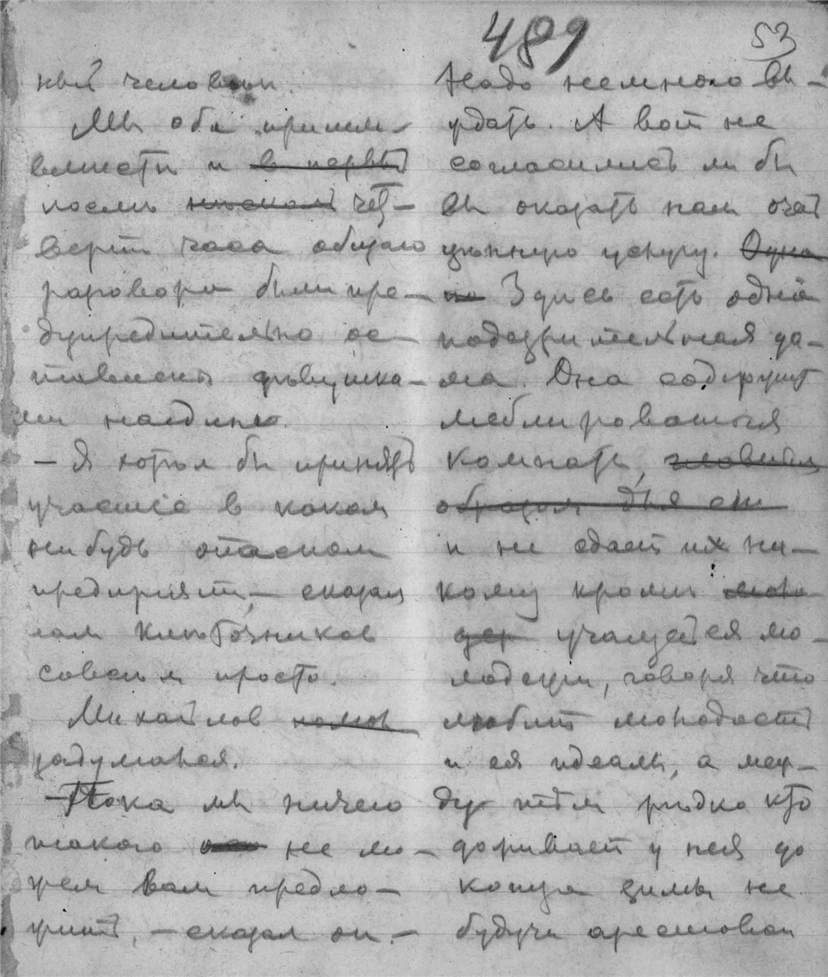 489 53
ный человек.
Мы оба
вместе и в первый
после чет-
верти часа общаго
разговора были пре-
дупредительно ос-
тавлены девушка-
ми наедине.
— Я хотел бы принять
участие в каком
нибудь опасном
предприятии, — сказал
нам Клеточников
совсем просто.
Михайлов
задумался.
— Пока мы ничего
такого не мо-
жем вам предло-
жить, — сказал он. —
Надо немного вы-
ждать. А вот не
согласились ли бы
вы оказать нам очень
ценную услугу. Одна
Здесь есть одна
подозрительная да-
ма. Она содержит
меблированныя
комнаты,
образом для
и не сдает их ни-
кому кроме
учащейся мо-
лодежи, говоря что
любит молодость
и ея идеалы, а меж-
ду тем редко кто
доживает у нея до
конца зимы не
будучи арестован